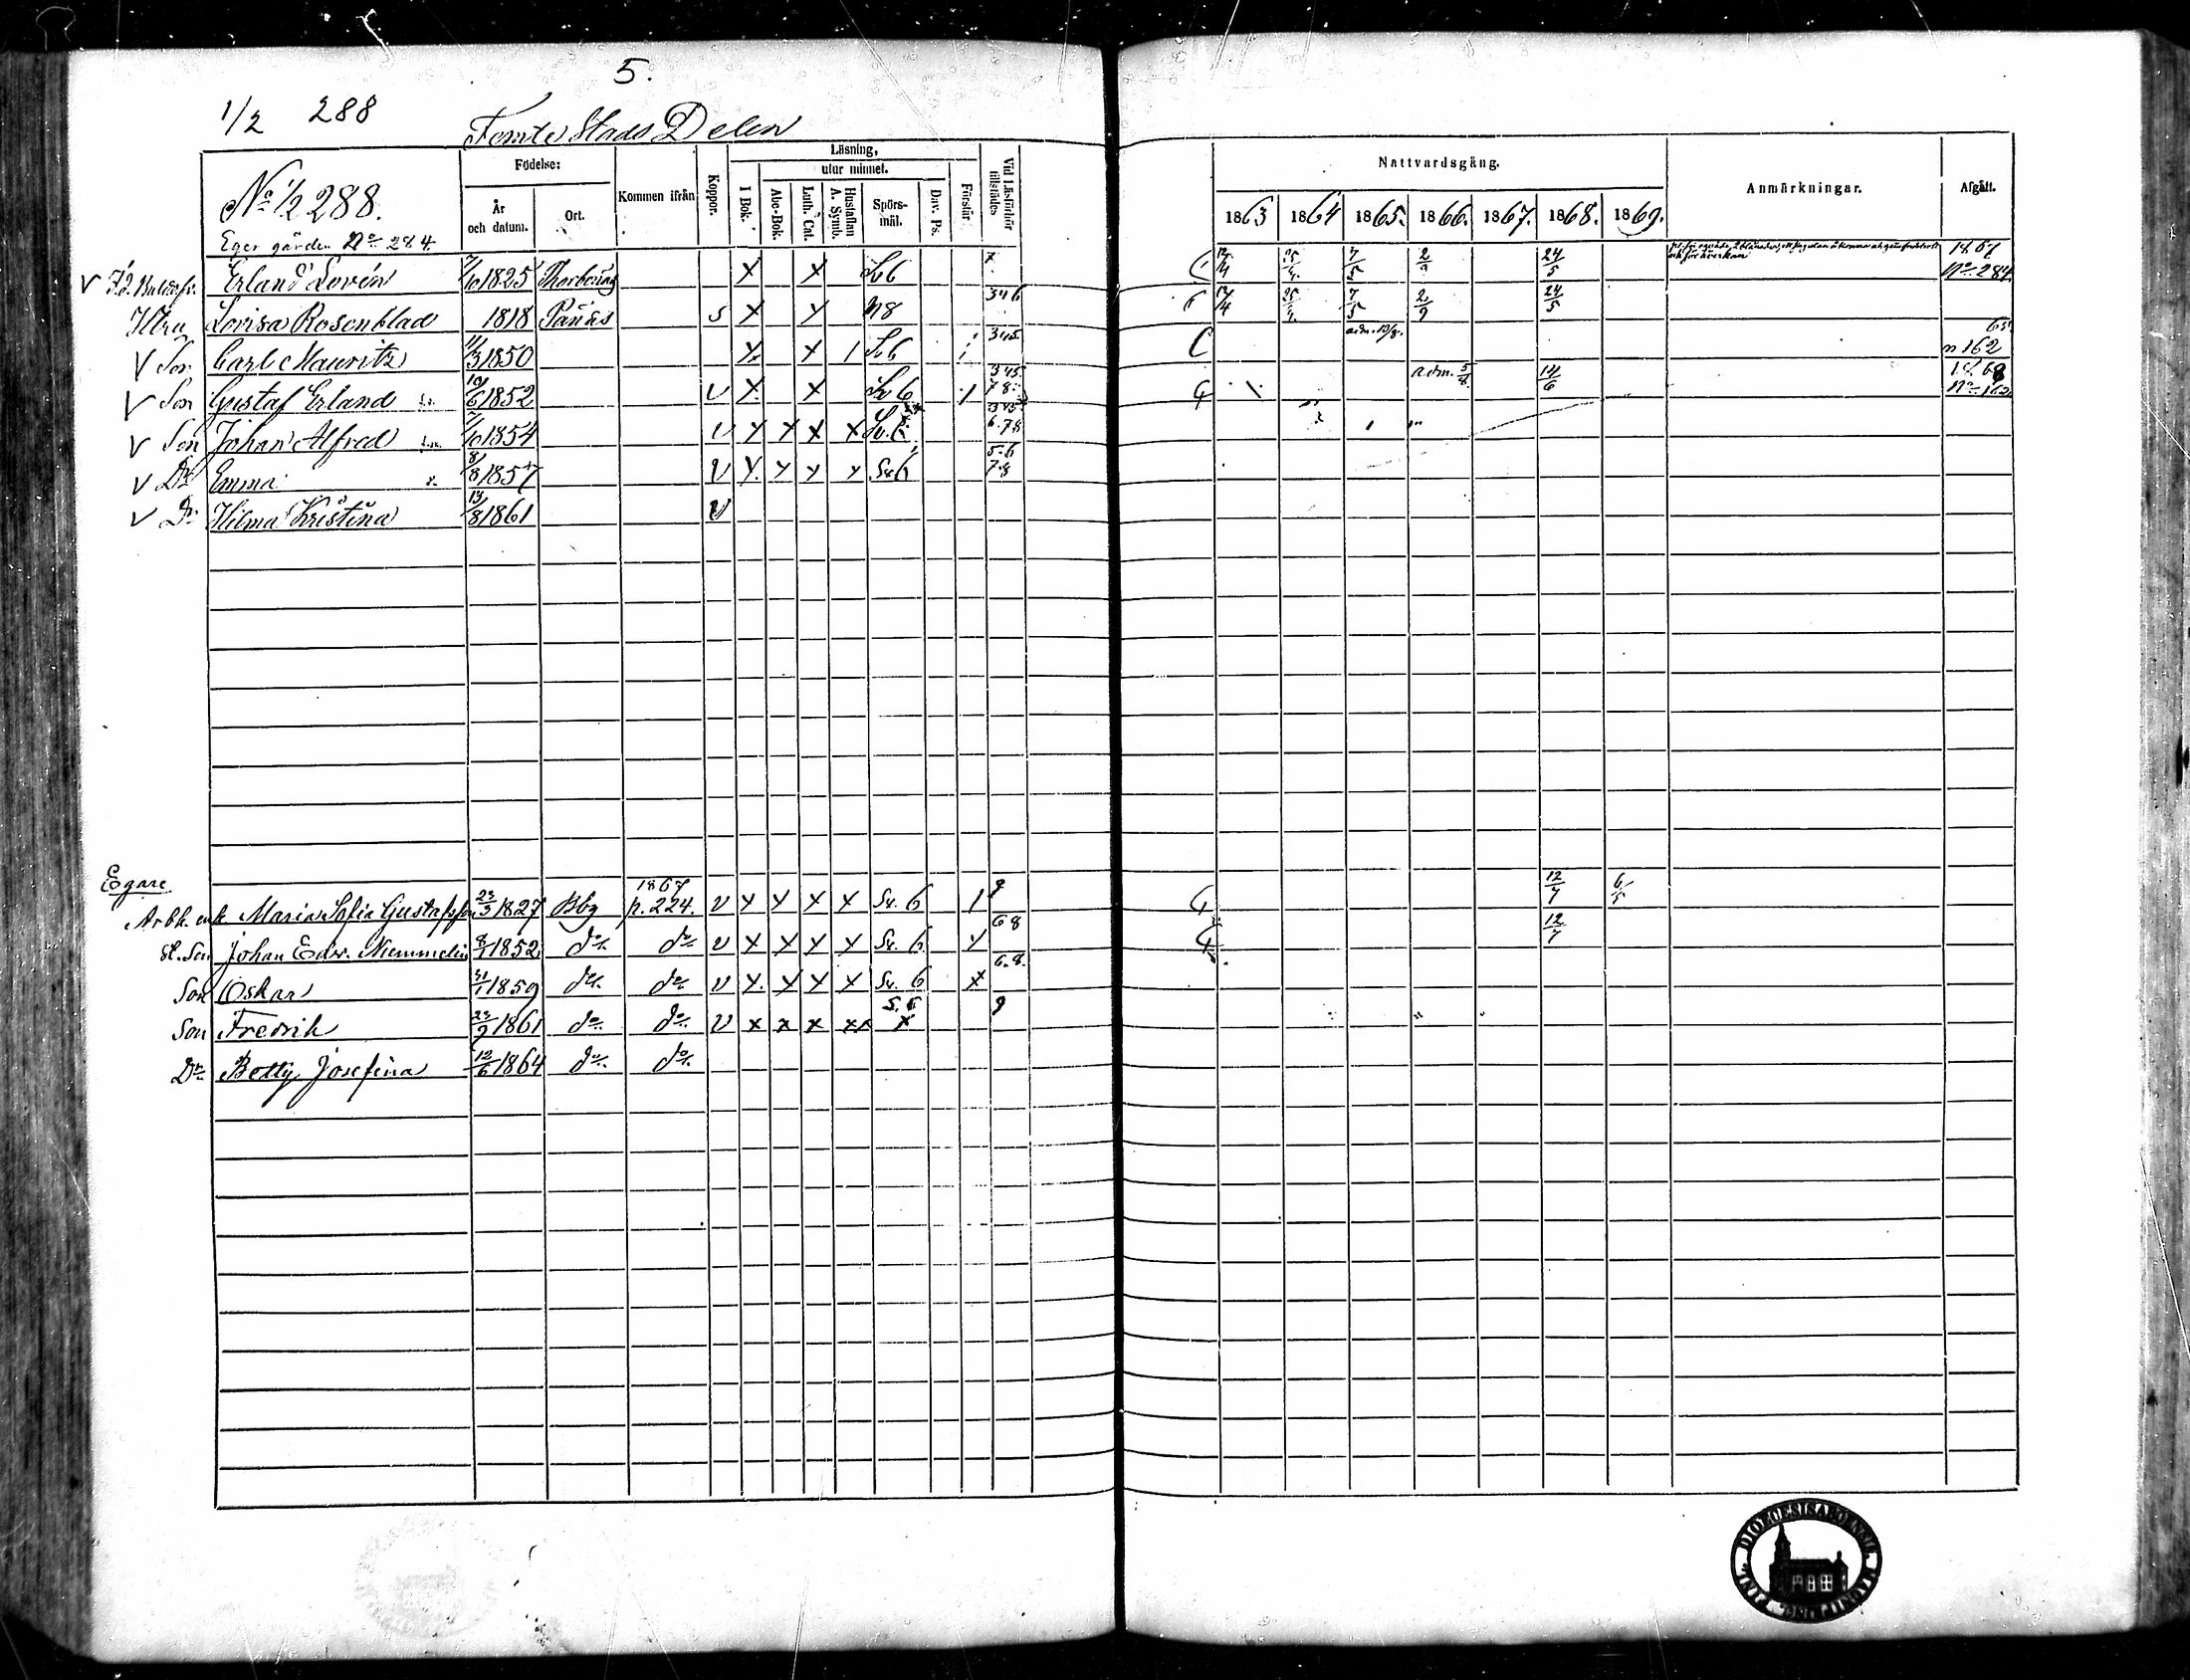 5.
1/2 288 Femte Stads Delen
No 1/2 288.
Eger gården No 284.
Födelse: År och datum. Ort. Kommen ifrån Koppor. Läsning, utur minnet. I Bok. Abc-Bok. Luth. Cat. Hustaflan A. Symb. Spörsmål. Dav. Ps. Förstår. Vid Läsförhör tillstädes
Nattvardsgång. Anmärkningar. Afgått.
1863 1864 1865. 1866. 1867. 1868. 1869.
V Erland Lovén 7/10 1825 X X Sv 6 C 24/5 1867 No 284
Lovisa Rosenblad 1818 S X X N8 346 7/5 2/9 24/5
V Son Carl Mauritz 11/3 1850 X X 1 Sv 6 345 C adm. n 162
V Son Gustaf Erland 10/6 1852 V X X Sv 6 1 345 78 adm. 5/8 14/6 1868 No 162
V Son Johan Alfred 7/10 1854 V X X X X 345 6.78
V Dr Emma 8/8 1857 V X X X X Sv 6 5-6 7.8
V Dr Hilma Kristina 13/8 1861 V
Egare
Arbk. enk Maria Sofia Gustafsson 23/3 1827 Bbg 1867 p. 224. V X X X X Sv. 6 1 9 12/7
Son Johan Edv. Nummelin 1852 do do V X X X X Sv. 6 X 68 12/7
Son Oskar 31/1 1859 do do V X X X X Sv. 6 X 6.8.
Son Fredrik 23/9 1861 do do V X X X XX 5.6 X 9
Dr Betty Josefina 12/6 1864 do do
DIOECESIS ABOENSIS